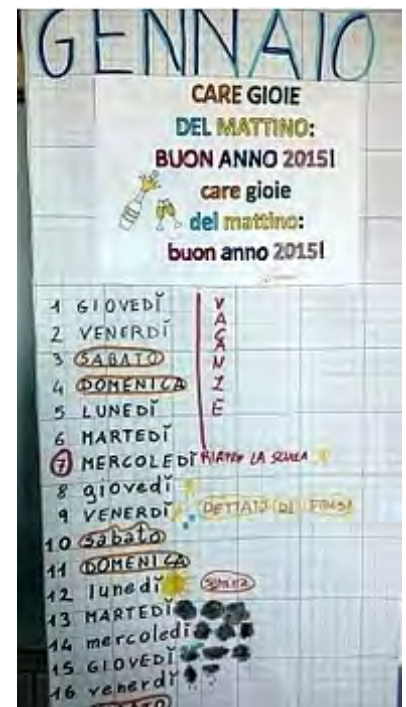 GENNAIO
CARE GIOIE
DEL MATTINO:
BUON ANNO 2015!
care gioie
del mattino:
buon anno 2015!
1 GIOVEDÌ
2 VENERDÌ
3 SABATO
4 DOMENICA
5 LUNEDÌ
VACANZE
6 MARTEDÌ
7 MERCOLEDÌ LA SCUOLA
8 giovedì
9 VENERDÌ DETTATO DI
10 Sabato
11 DOMENICA
12 lunedì
13 MARTEDÌ
14 mercoledì
15 GIOVEDÌ
16 venerdì